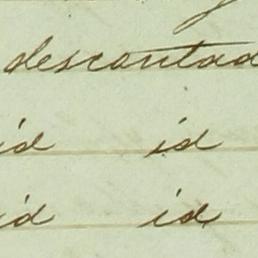 descontad
id id
id id